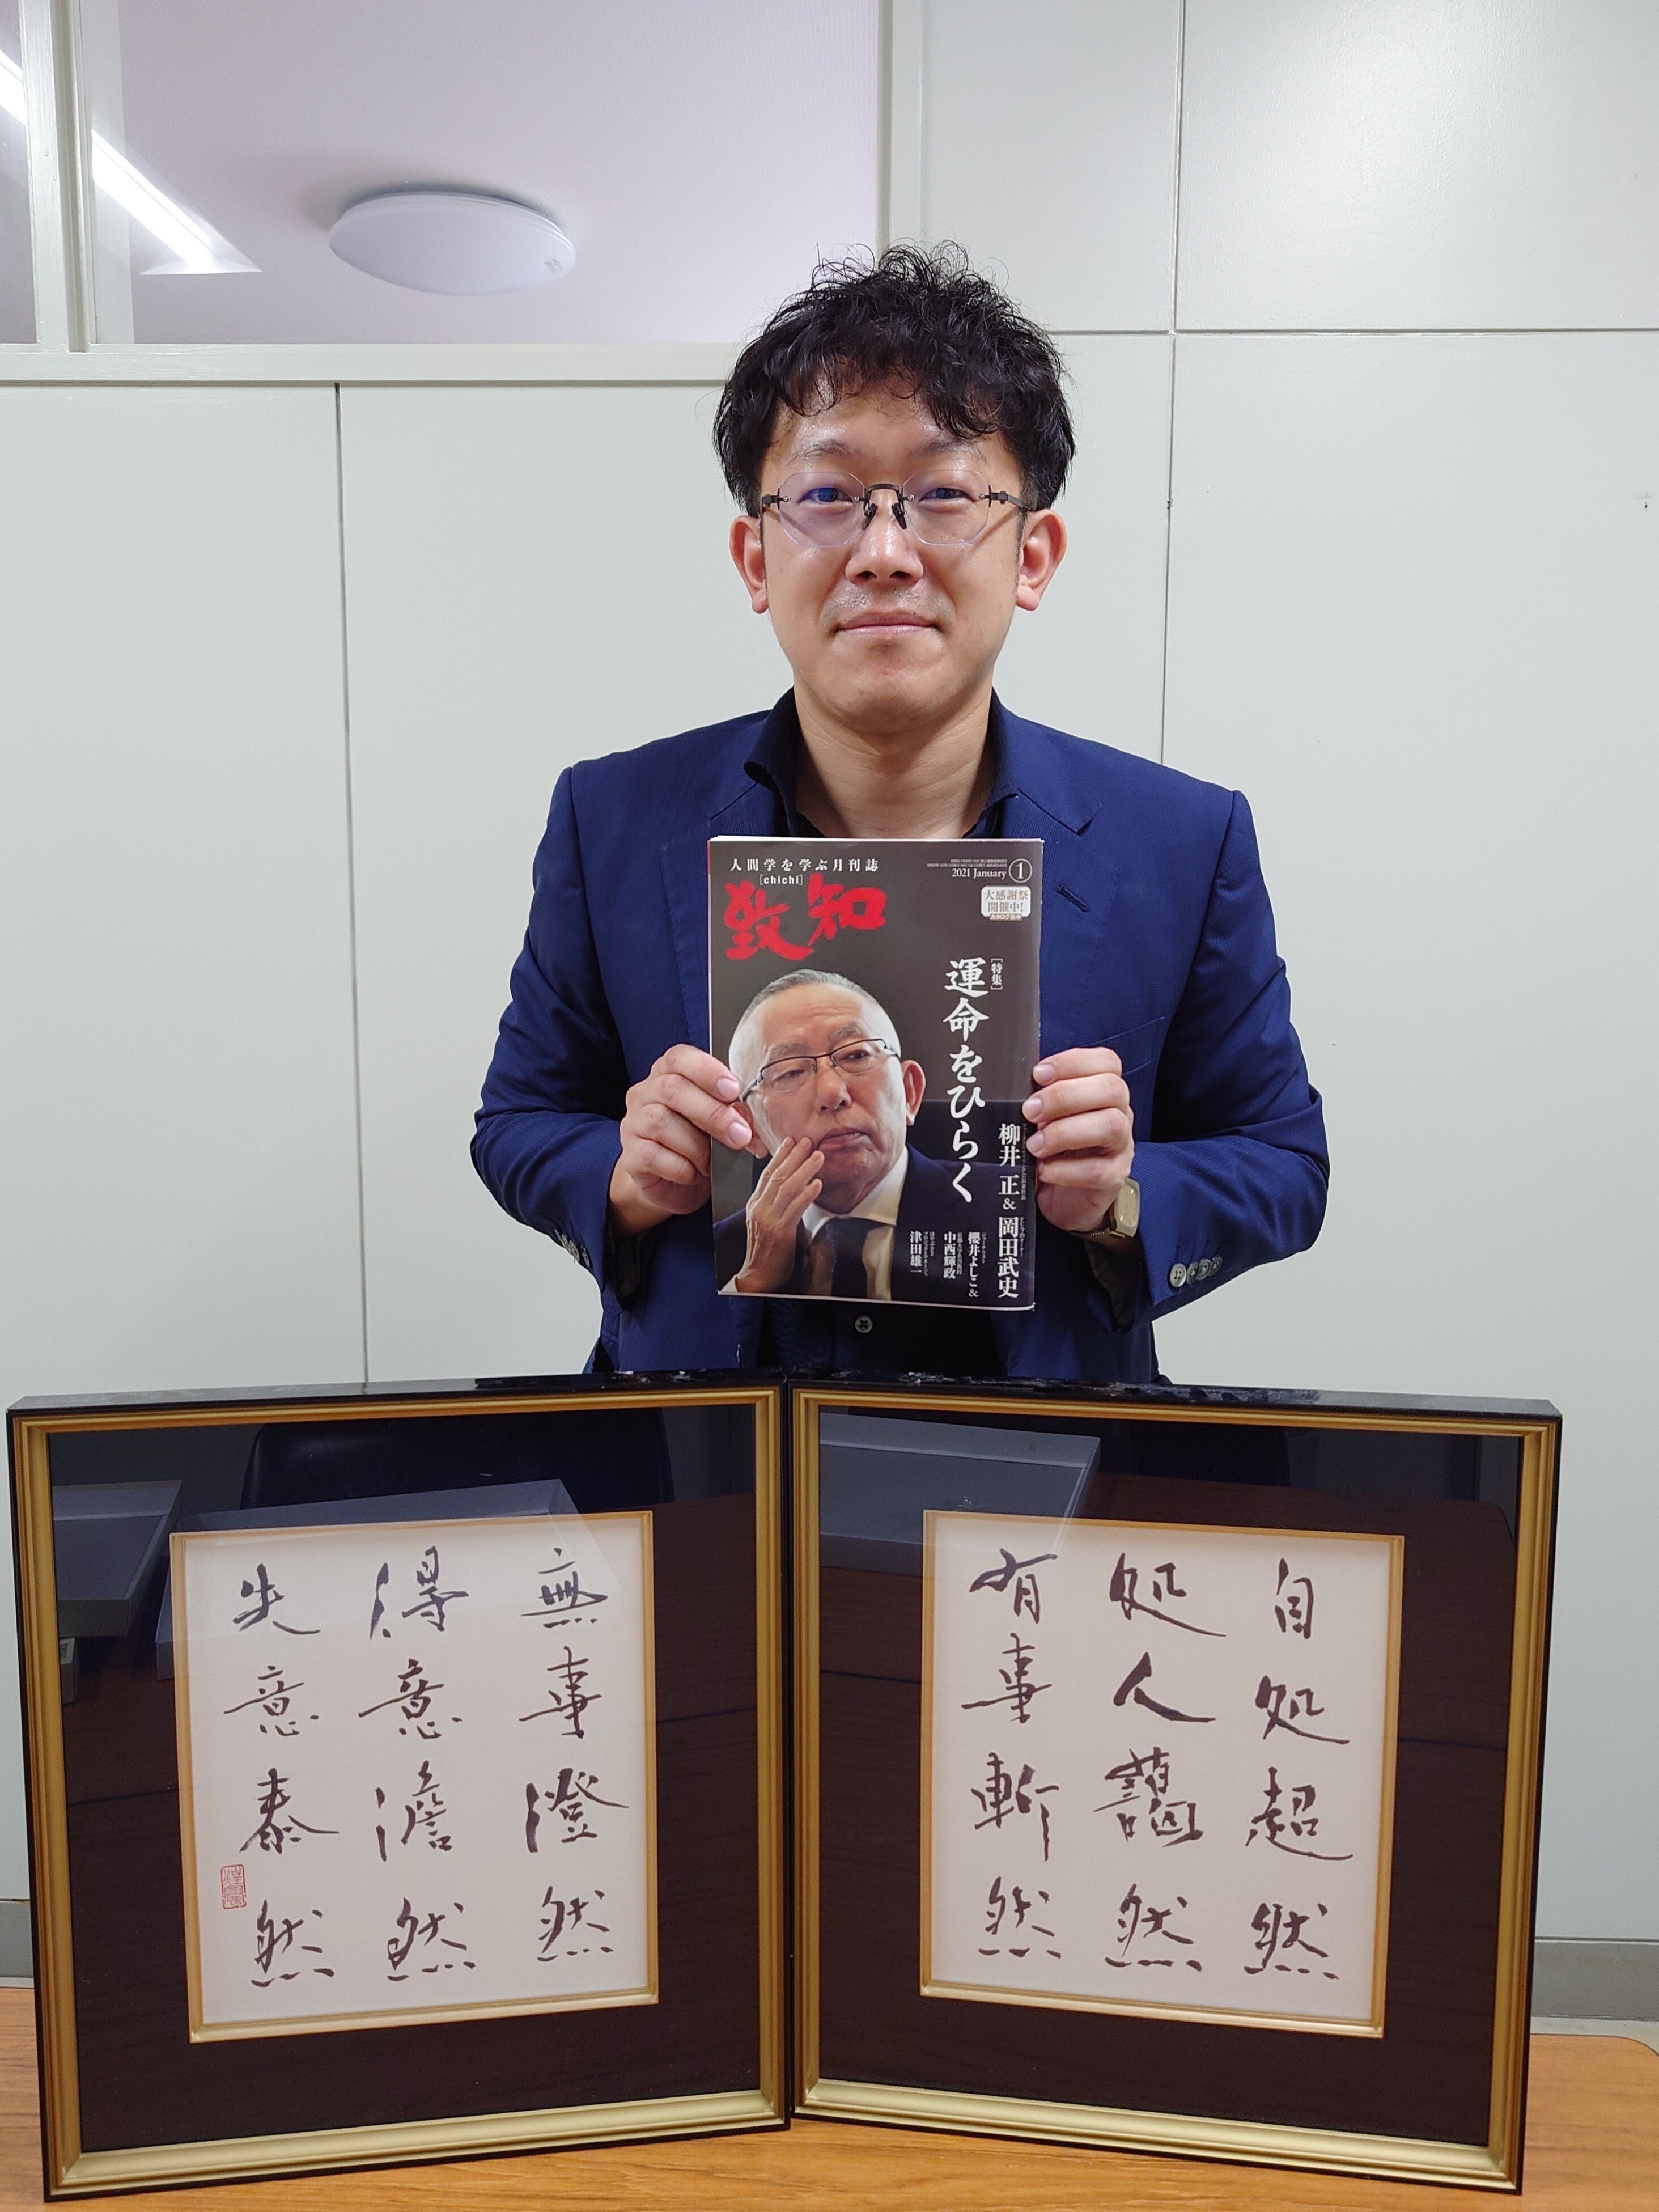 人間学を学ぶ月刊誌
[chichi]
致知
2021 January 1
大感謝祭
開催中!
[特集]
運命をひらく
柳井 正 & 岡田武史
櫻井よしこ &
中西輝政
津田雄一
自処超然
処人藹然
有事斬然
無事澄然
得意澹然
失意泰然